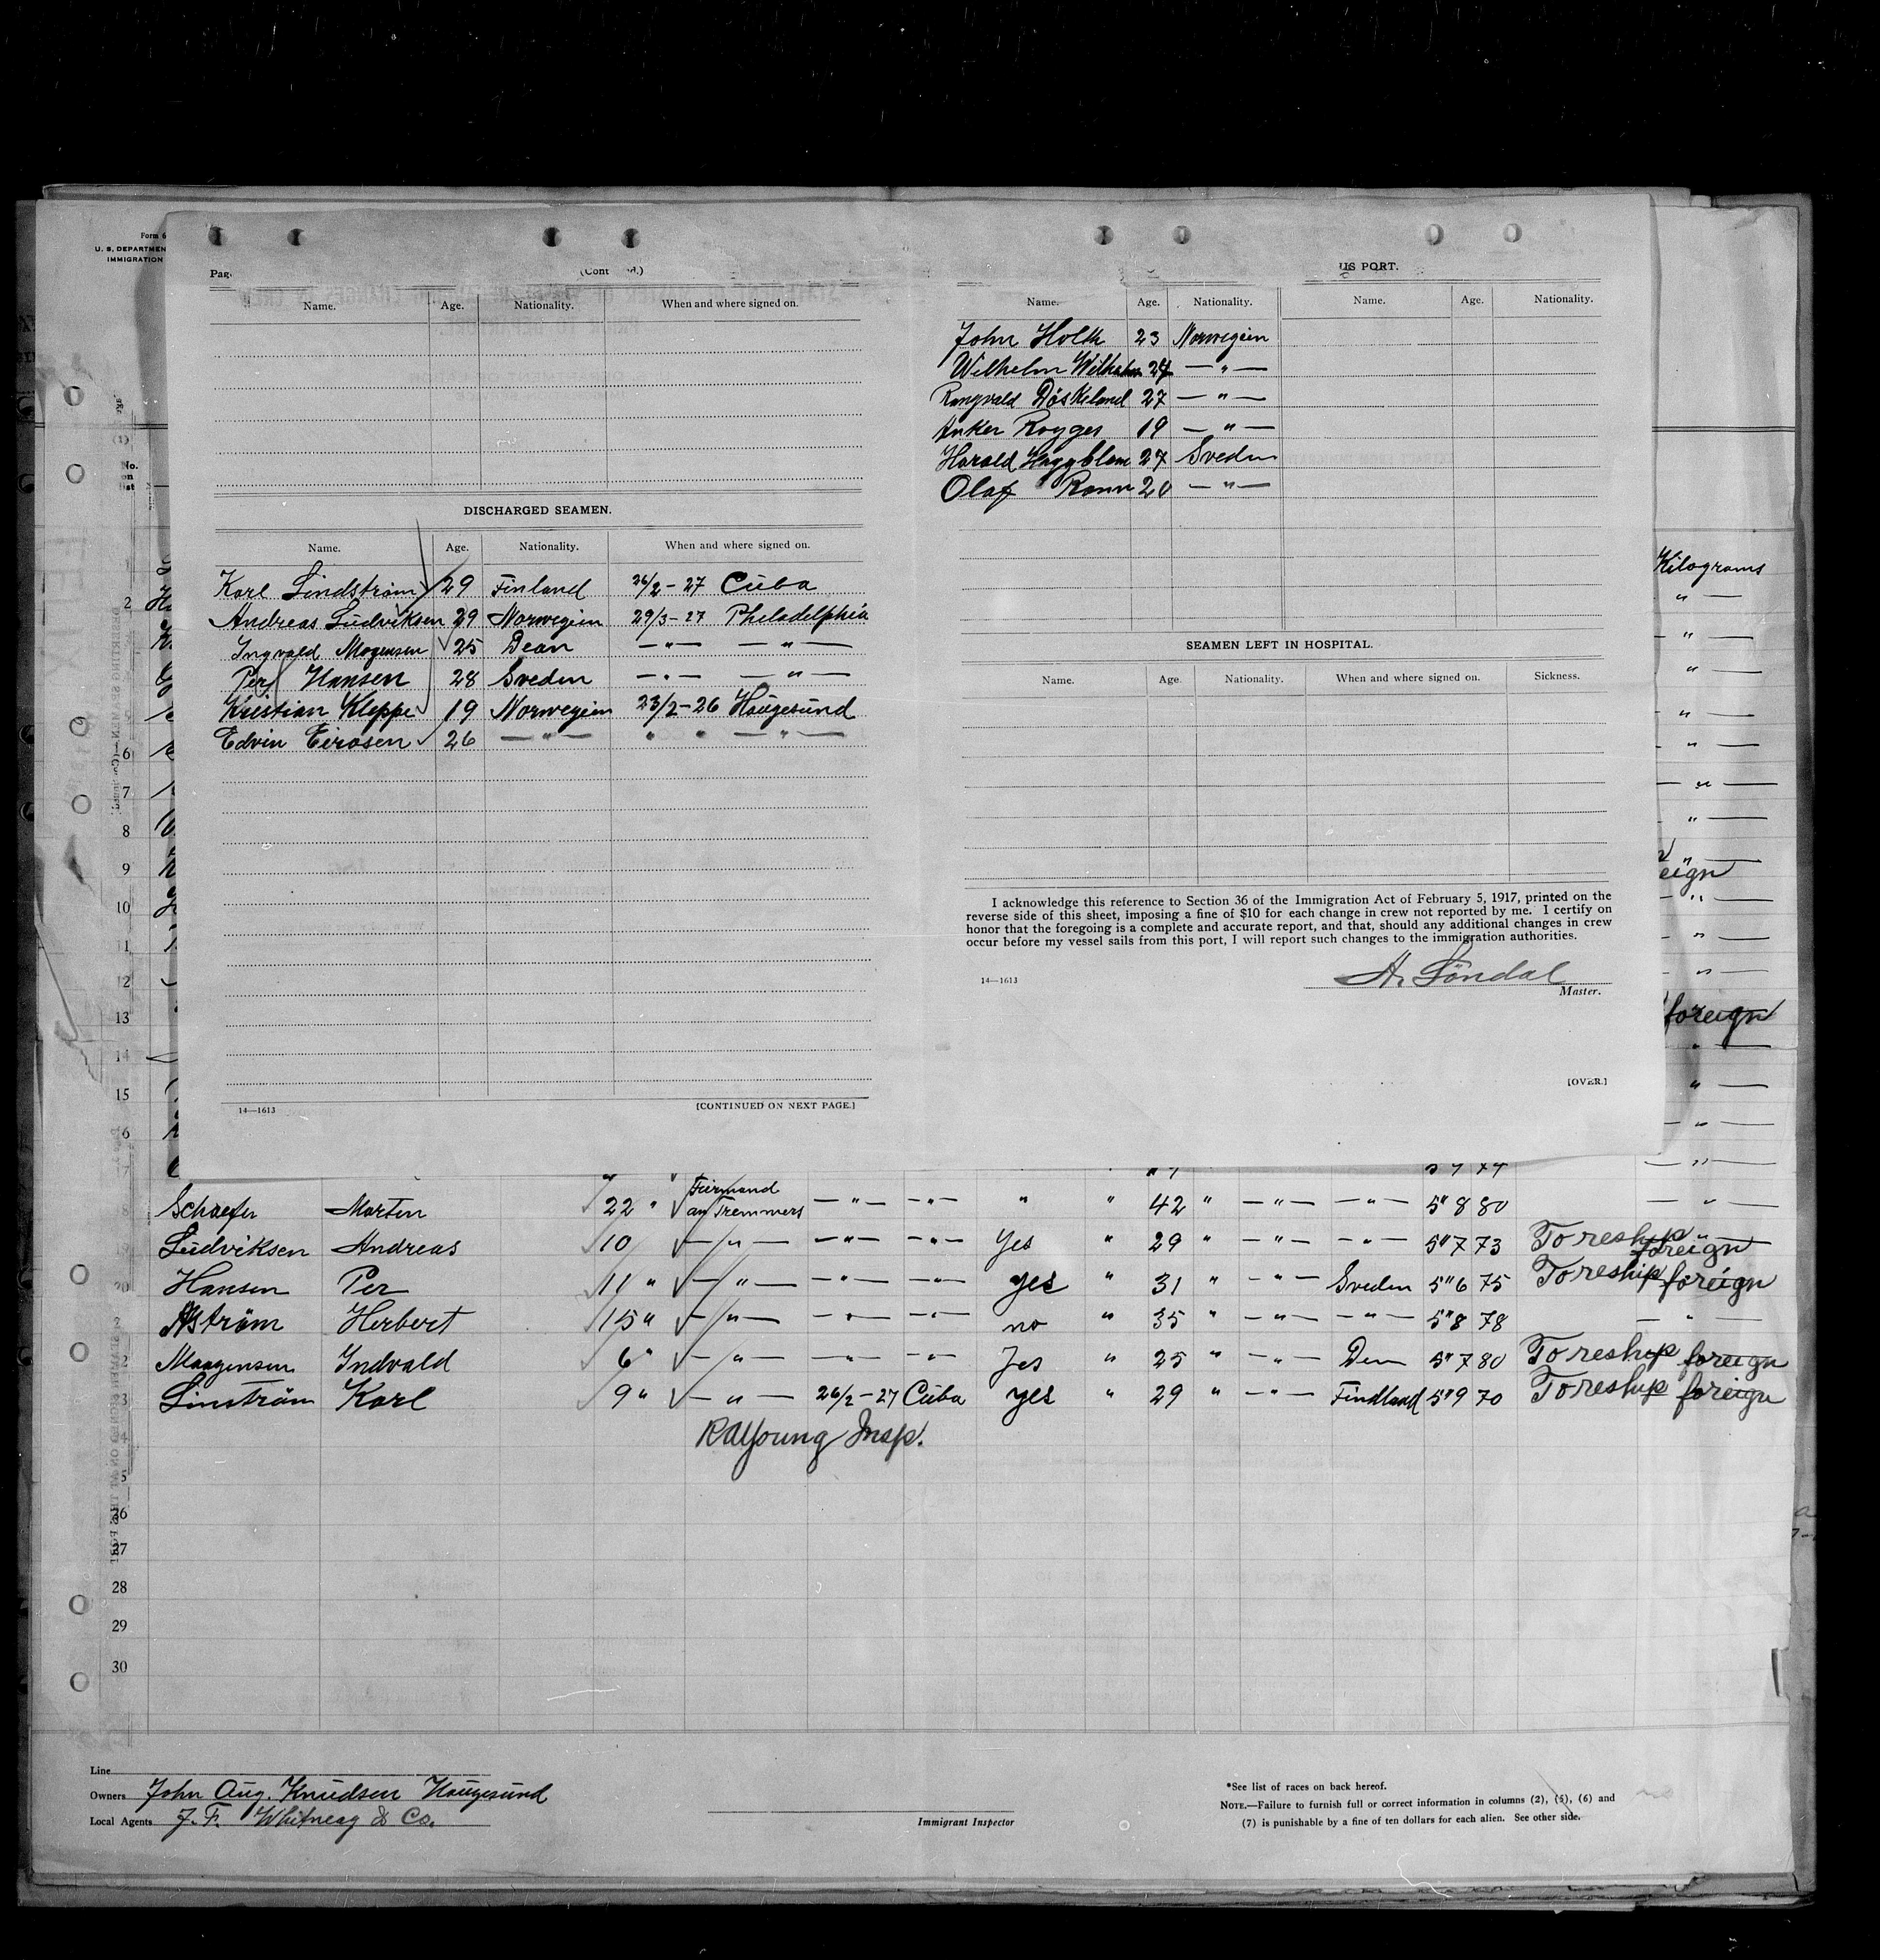 Form 6
U. S. DEPARTMEN
IMMIGRATION
Pag. (Cont d.)
Name. Age. Nationality. When and where signed on.
DISCHARGED SEAMEN.
Name. Age. Nationality. When and where signed on.
Karl Lindström 29 Finland 26/2-27 Cuba
Andreas Ludviksen 29 Norwegien 29/3-27 Philadelphia
Ingvald Mogensen 25 Dean —"— —"—
Per Hansen 28 Sveden —"— —"—
Kristian Kleppe 19 Norwegien 23/2-26 Haugesund
Edvin Eirosen 26 —"— " " —"—
14—1613 [CONTINUED ON NEXT PAGE.]
US PORT.
Name. Age. Nationality. Name. Age. Nationality.
John Holth 23 Norwegien
Wilhelm 24 —"—
Rangvald Döskeland 27 —"—
Anker Rogges 19 —"—
Harald Haggblom 27 Sveden
Olaf Ronn 20 —"—
SEAMEN LEFT IN HOSPITAL.
Name. Age. Nationality. When and where signed on. Sickness.
I acknowledge this reference to Section 36 of the Immigration Act of February 5, 1917, printed on the
reverse side of this sheet, imposing a fine of $10 for each change in crew not reported by me. I certify on
honor that the foregoing is a complete and accurate report, and that, should any additional changes in crew
occur before my vessel sails from this port, I will report such changes to the immigration authorities.
A. Söndal
14—1613 Master.
[OVER.]
(1)
No.
on
list
Kilograms
2
6
7
8
9
eign
10
11
12
13 foreign
14
15
6
7
8 Schaefer Morten 22 " Fiermand an Tremmers —"— —"— " " 42 " —"— —"— 5"8 80 —"—
Ludviksen Andreas 10 —"— —"— —"— Yes " 29 " —"— —"— 5"7 73 To reship foreign
20 Hansen Per 11 " —"— —"— —"— yes " 31 " —"— Sveden 5"6 75 To reship foreign
2 Åström Herbert 15 " —"— —"— —"— no " 35 " —"— —"— 5"8 78 —"—
2 Maagensen Indvald 6 " —"— —"— —"— Yes " 25 " —"— Den 5"7 80 To reship foreign
3 Linström Karl 9 " —"— 26/2-27 Cuba yes " 29 " —"— Findland 5"9 70 To reship foreign
24 RAYoung Insp.
5
26
27
28
29
30
Line
Owners John Aug. Knudsen Haugesund
Local Agents J. F. Whitneag & Co.
Immigrant Inspector
*See list of races on back hereof.
NOTE.—Failure to furnish full or correct information in columns (2), (5), (6) and
(7) is punishable by a fine of ten dollars for each alien. See other side.